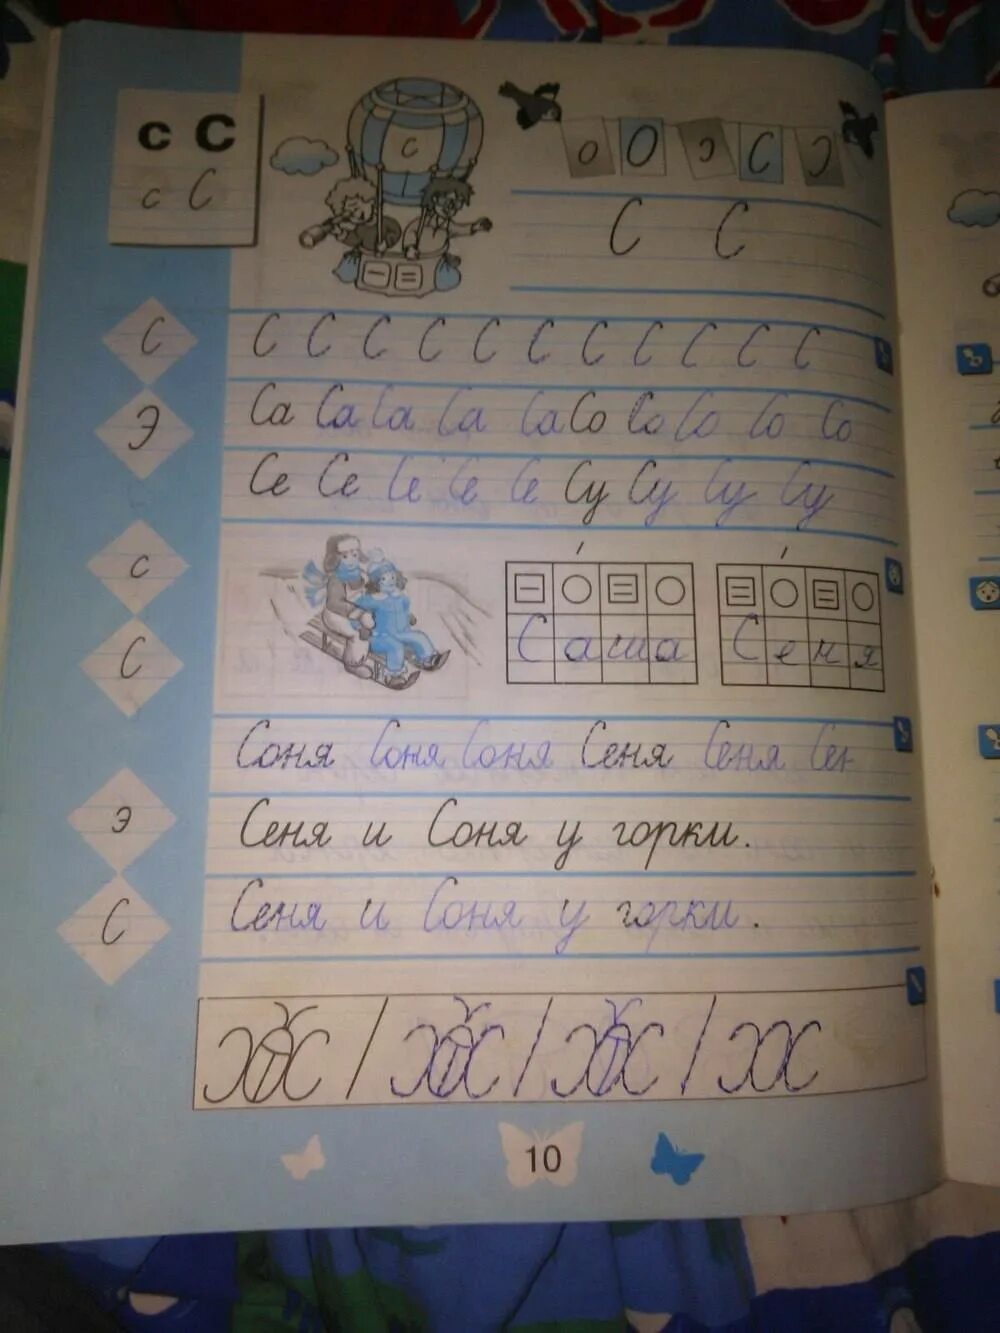 с С
с С
с
о О с С С
С С
С С С С С С С С С С С С
Э Са Са Са Са Са Со Со Со Со Со
Се Се Се Се Се Су Су Су Су
с
С Саша Сеня
Соня Соня Соня Сеня Сеня Сен
э Сеня и Соня у горки.
С Сеня и Соня у горки.
10